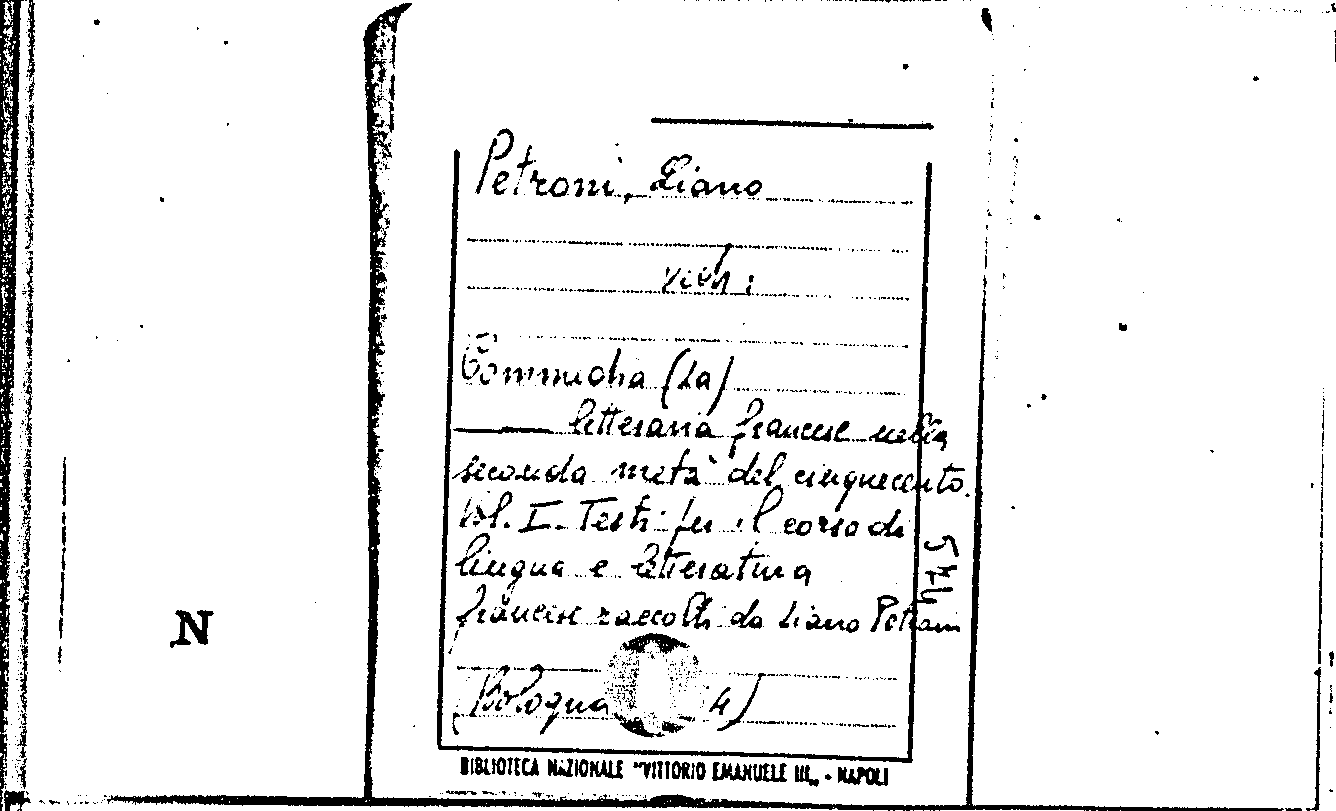 Petroni, Liano
vedi:
Commedia (La)
letteraria francese nella
seconda metà del cinquecento.
Vol. I. Testi per il corso di
lingua e letteratura
francese raccolti da Liano Petroni
(Bologna 4)
544
N
BIBLIOTECA NAZIONALE "VITTORIO EMANUELE III„ - NAPOLI